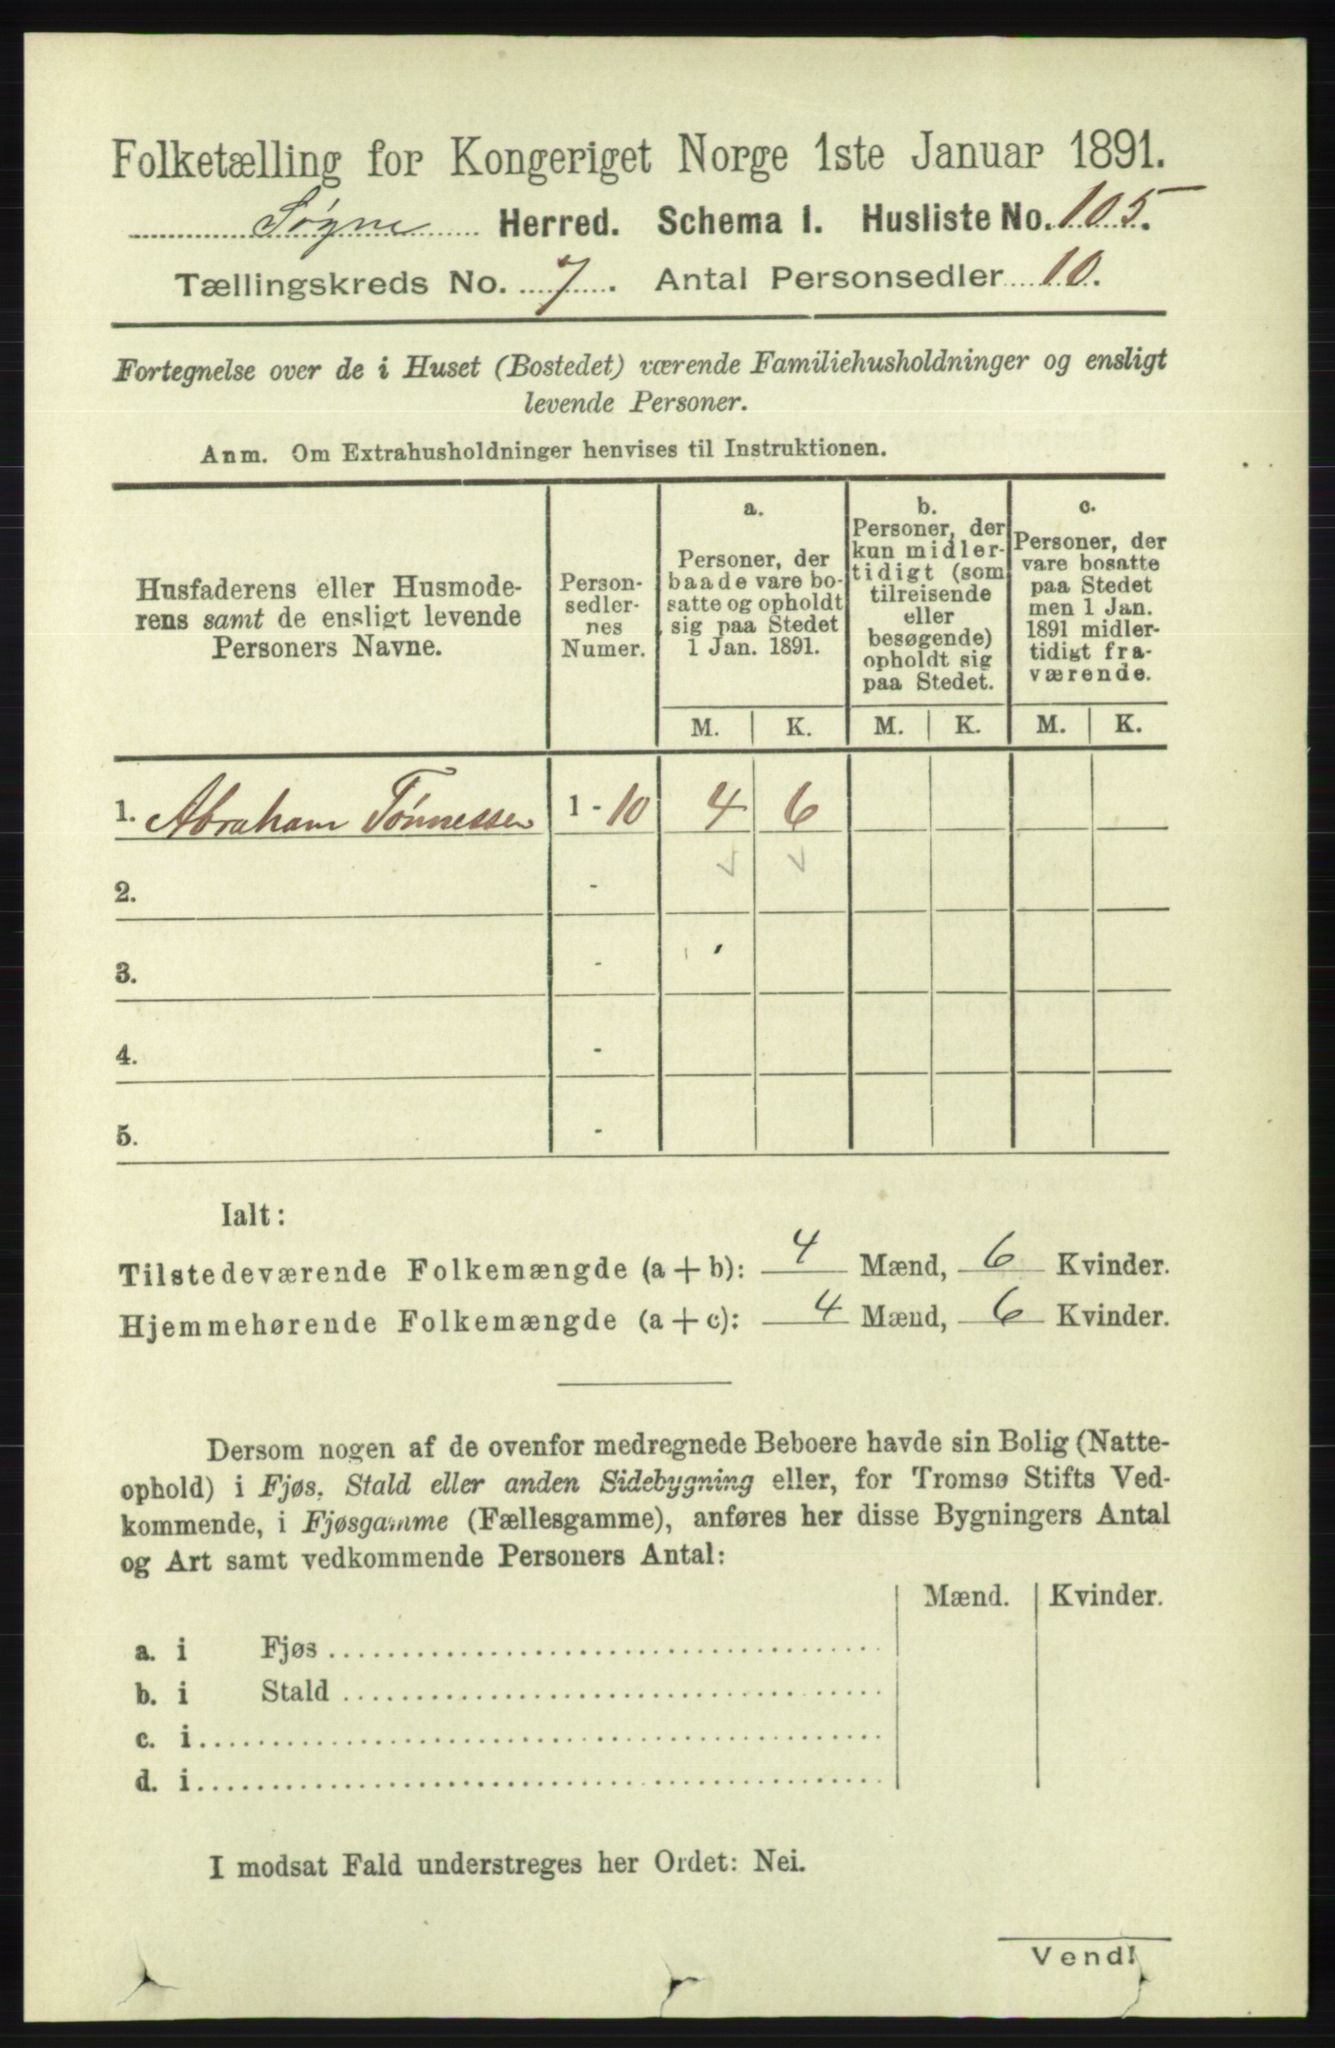 Folketælling for Kongeriget Norge 1ste Januar 1891.
Søgne Herred. Schema 1. Husliste No. 105.
Tællingskreds No. 7. Antal Personsedler 10.
Fortegnelse over de i Huset (Bostedet) værende Familiehusholdninger og ensligt
levende Personer.
Anm. Om Extrahusholdninger henvises til Instruktionen.
Husfaderens eller Husmode-
rens samt de ensligt levende
Personers Navne.
Person-
sedler-
nes
Numer.
a.
Personer, der
baade vare bo-
satte og opholdt
sig paa Stedet
1 Jan. 1891.
b.
Personer, der
kun midler-
tidigt (som
tilreisende
eller
besøgende)
opholdt sig
paa Stedet.
c.
Personer, der
vare bosatte
paa Stedet
men 1 Jan.
1891 midler-
tidigt fra-
værende.
M. K. M. K. M. K.
1. Abraham Tønnessen 1 - 10 4 6
2. -
3. -
4. -
5. -
Ialt:
Tilstedeværende Folkemængde (a + b): 4 Mænd, 6 Kvinder.
Hjemmehørende Folkemængde (a + c): 4 Mænd, 6 Kvinder.
Dersom nogen af de ovenfor medregnede Beboere havde sin Bolig (Natte-
ophold) i Fjøs, Stald eller anden Sidebygning eller, for Tromsø Stifts Ved-
kommende, i Fjøsgamme (Fællesgamme), anføres her disse Bygningers Antal
og Art samt vedkommende Personers Antal:
Mænd. Kvinder.
a. i Fjøs
b. i Stald
c. i
d. i
I modsat Fald understreges her Ordet: Nei.
Vend!